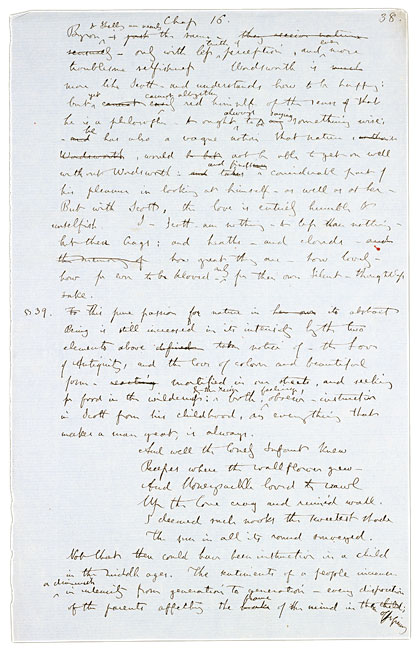 Chap 16. 38.
& Shelley are nearly
Byron is just the same -
truth of even
only with less perception, and more
troublesome selfishness Wordsworth is much
more like Scott - and understands how to be happy:
yet cannot altogether
but cannot rid himself of the sense that
always saying
he is a philosopher & ought to something wise.
he
and has also a vague notion that nature,
Wordsworth, would not be able to get on well
and finds
without Wordsworth - and takes a considerable part of
his pleasure in looking at himself - as well as at her -
But with Scott, the love is entirely humble &
unselfish I - Scott - am nothing - & less than nothing -
but these crags: and heaths - and clouds - and
the memory of how great they are - how lovely
only
how for ever to be beloved - for their own silent - thoughtless
sake.
§ 39. To this pure passion for nature in its abstract
Being is still increased in its intensity by the two
elements above taken notice of - the love
of Antiquity, and the love of colour and beautiful
form - mortified in our streets, and seeking
for food in the wilderness: & both, observe - instinctive
in Scott from his childhood, as everything that
makes a man great, is always.
And well the lonely Infant knew
Recesses where the wallflower grew -
And Honeysuckle loved to crawl
Up the low crag and ruin'd wall.
I deemed such nooks the sweetest shade
The sun in all its round surveyed.
Not that these could have been instinctive in a child
in the middle ages. The sentiments of a people increase
or diminish
in intensity from generation to generation - every disposition
frame
of the parents affecting the of the mind in the
offspring